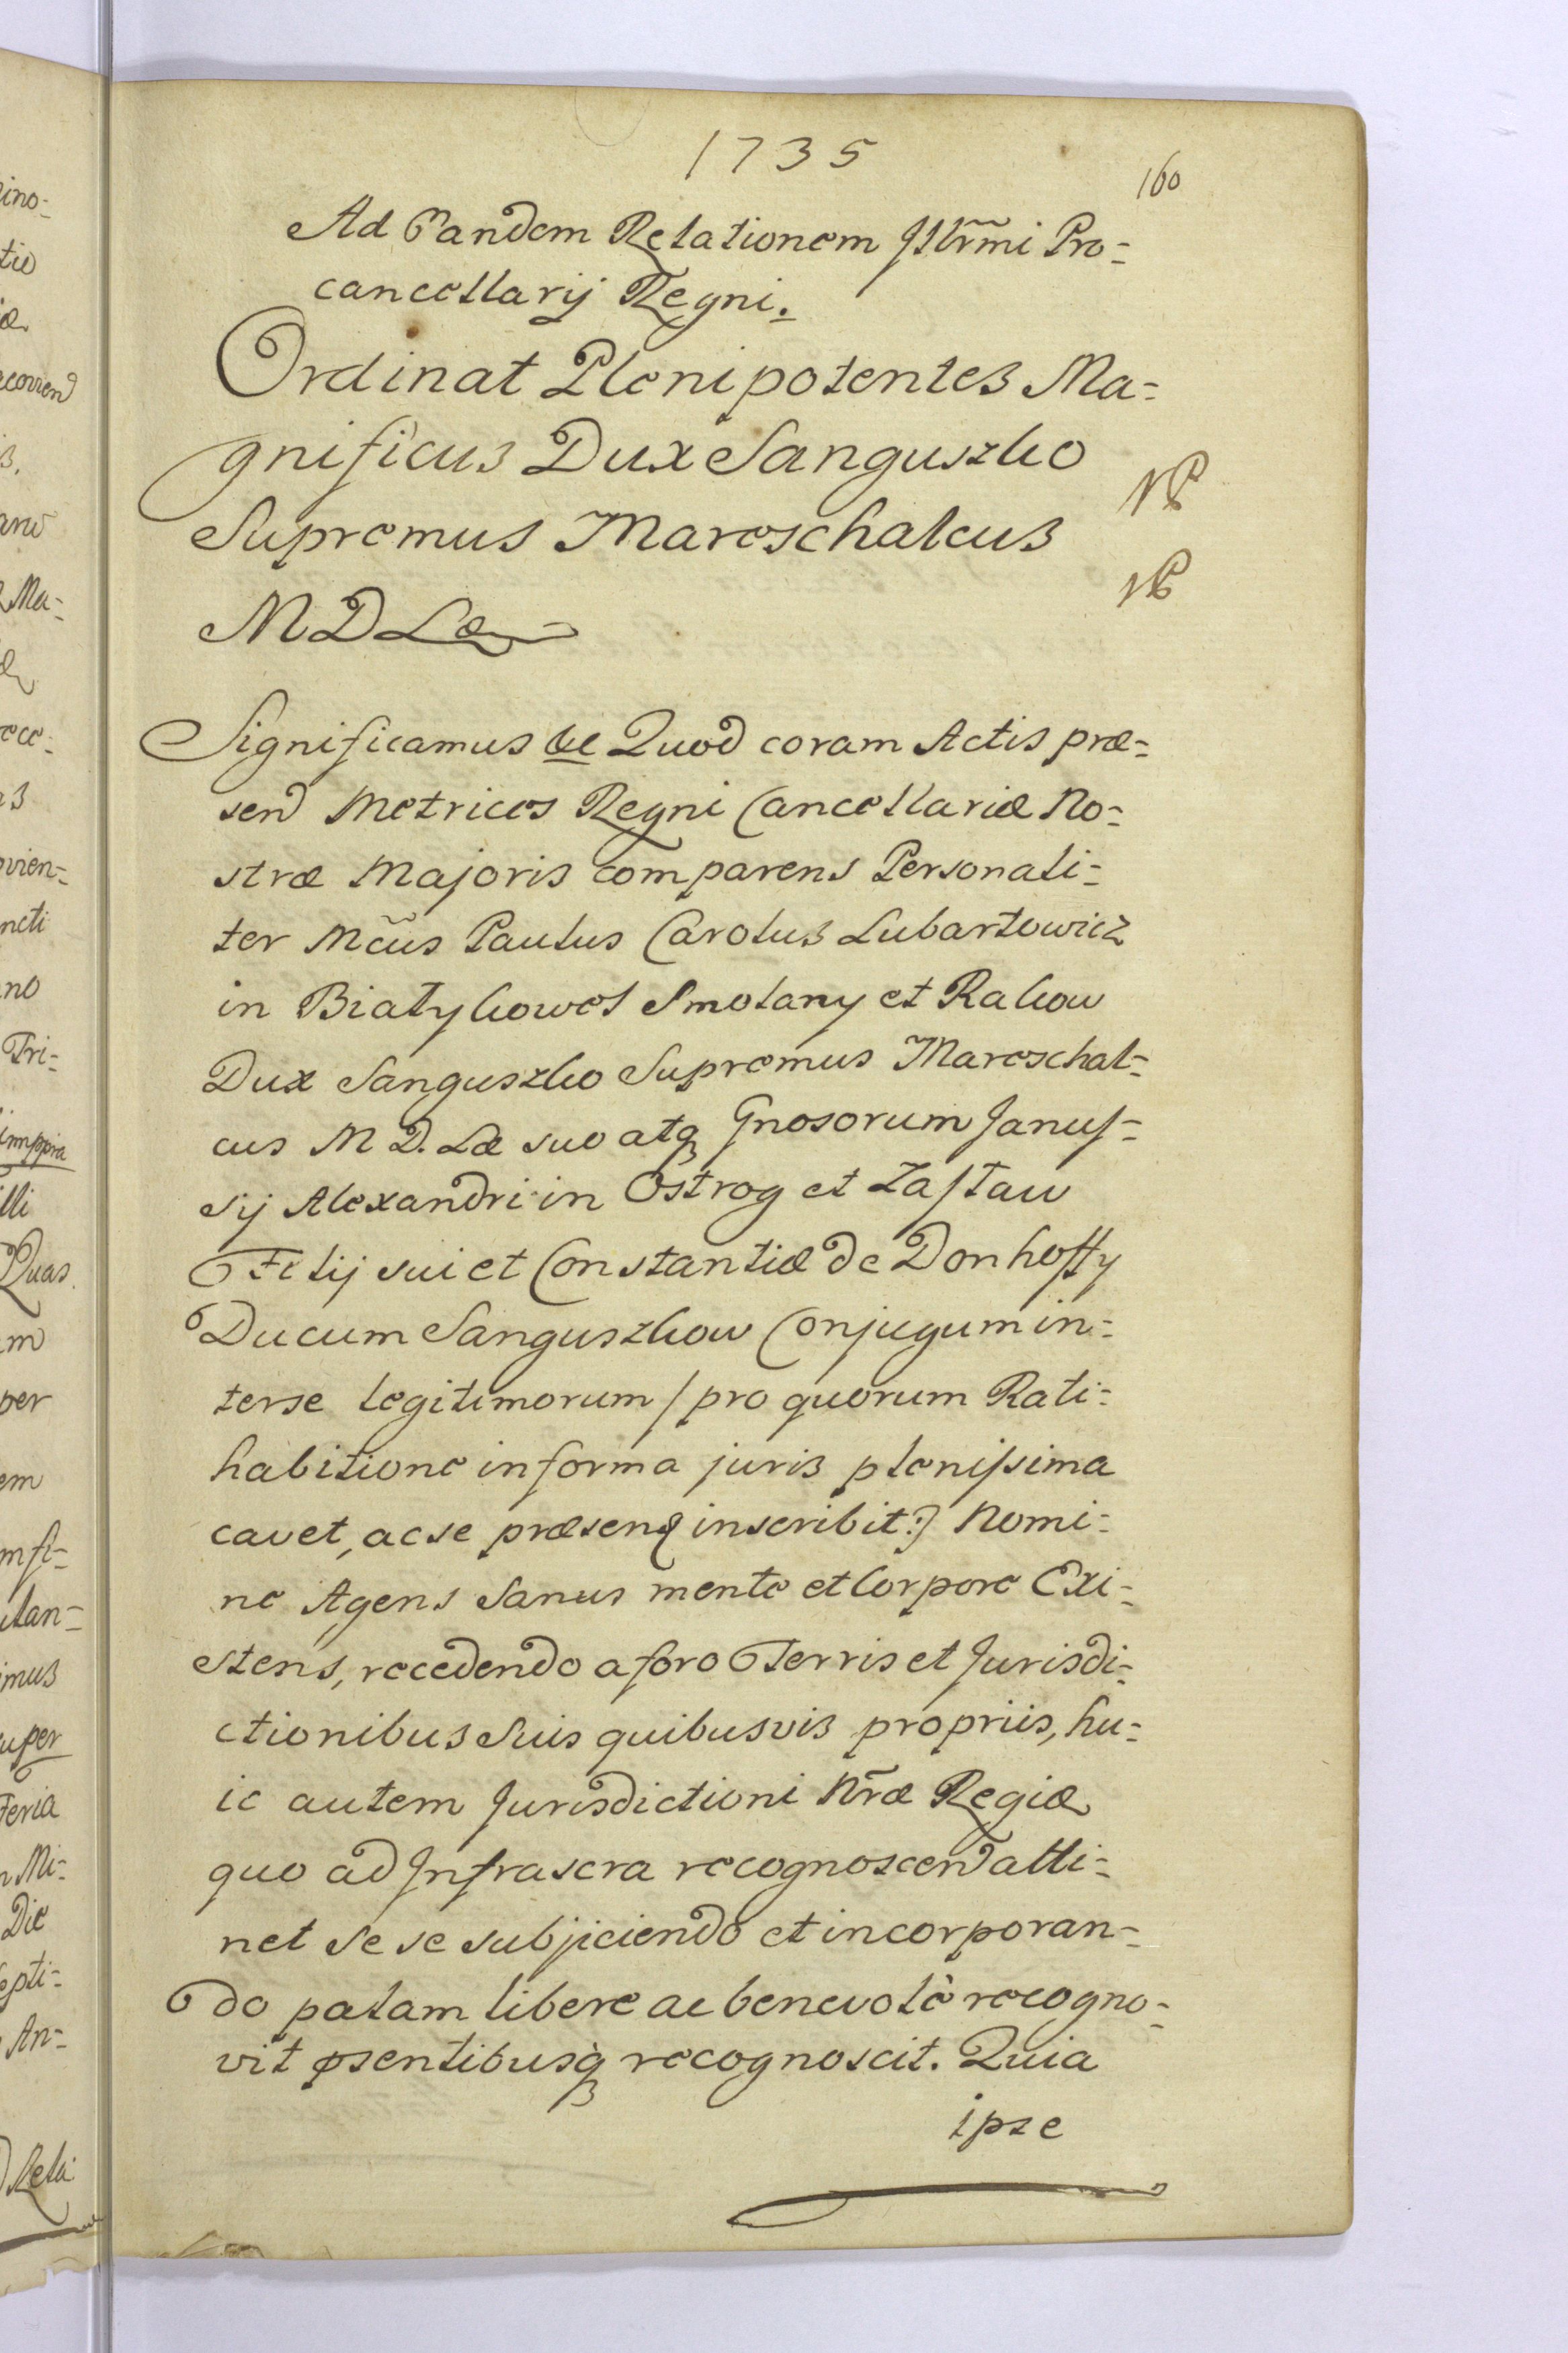 1735
160
Ad Eandem Relationem Jllr̃mi Pro=
cancellarij Regni.
Ordinat Plenipotentes Ma=
gnificus Dux Sanguszko
Supremus Mareschalcus
M D Læ
NB
NB
Significamus &c Quod coram Actis præ=
send Metrices Regni Cancellariæ No=
stræ Majoris comparens Personali=
ter Mc̃us Paulus Carolus Lubartowicz
in Białykowel Smolany et Rakow
Dux Sanguszko Supremus Mareschal=
cus M D. Læ suo atq Gnosorum Janus=
sij Alexandri in Ostrog et Zasław
Filij sui et Constantiæ de Donhoffy
Ducum Sanguszkow Conjugum in=
terse legitimorum / pro quorum Rati=
habitione in forma juris plenissima
cavet, ac se præsenq inscribit:/ Nomi=
ne Agens Sanus mente et Corpore Exi=
stens, recedendo a foro Terris et Jurisdi=
ctionibus Suis quibusvis propriis, hu=
ic autem Jurisdictioni Nr̃æ Regiæ
quo ad Jnfrascra recognoscend atti=
net se se subjiciendo et incorporan=
do palam libere ac benevolè recogno=
vit psentibusq recognoscit. Quia
ipse